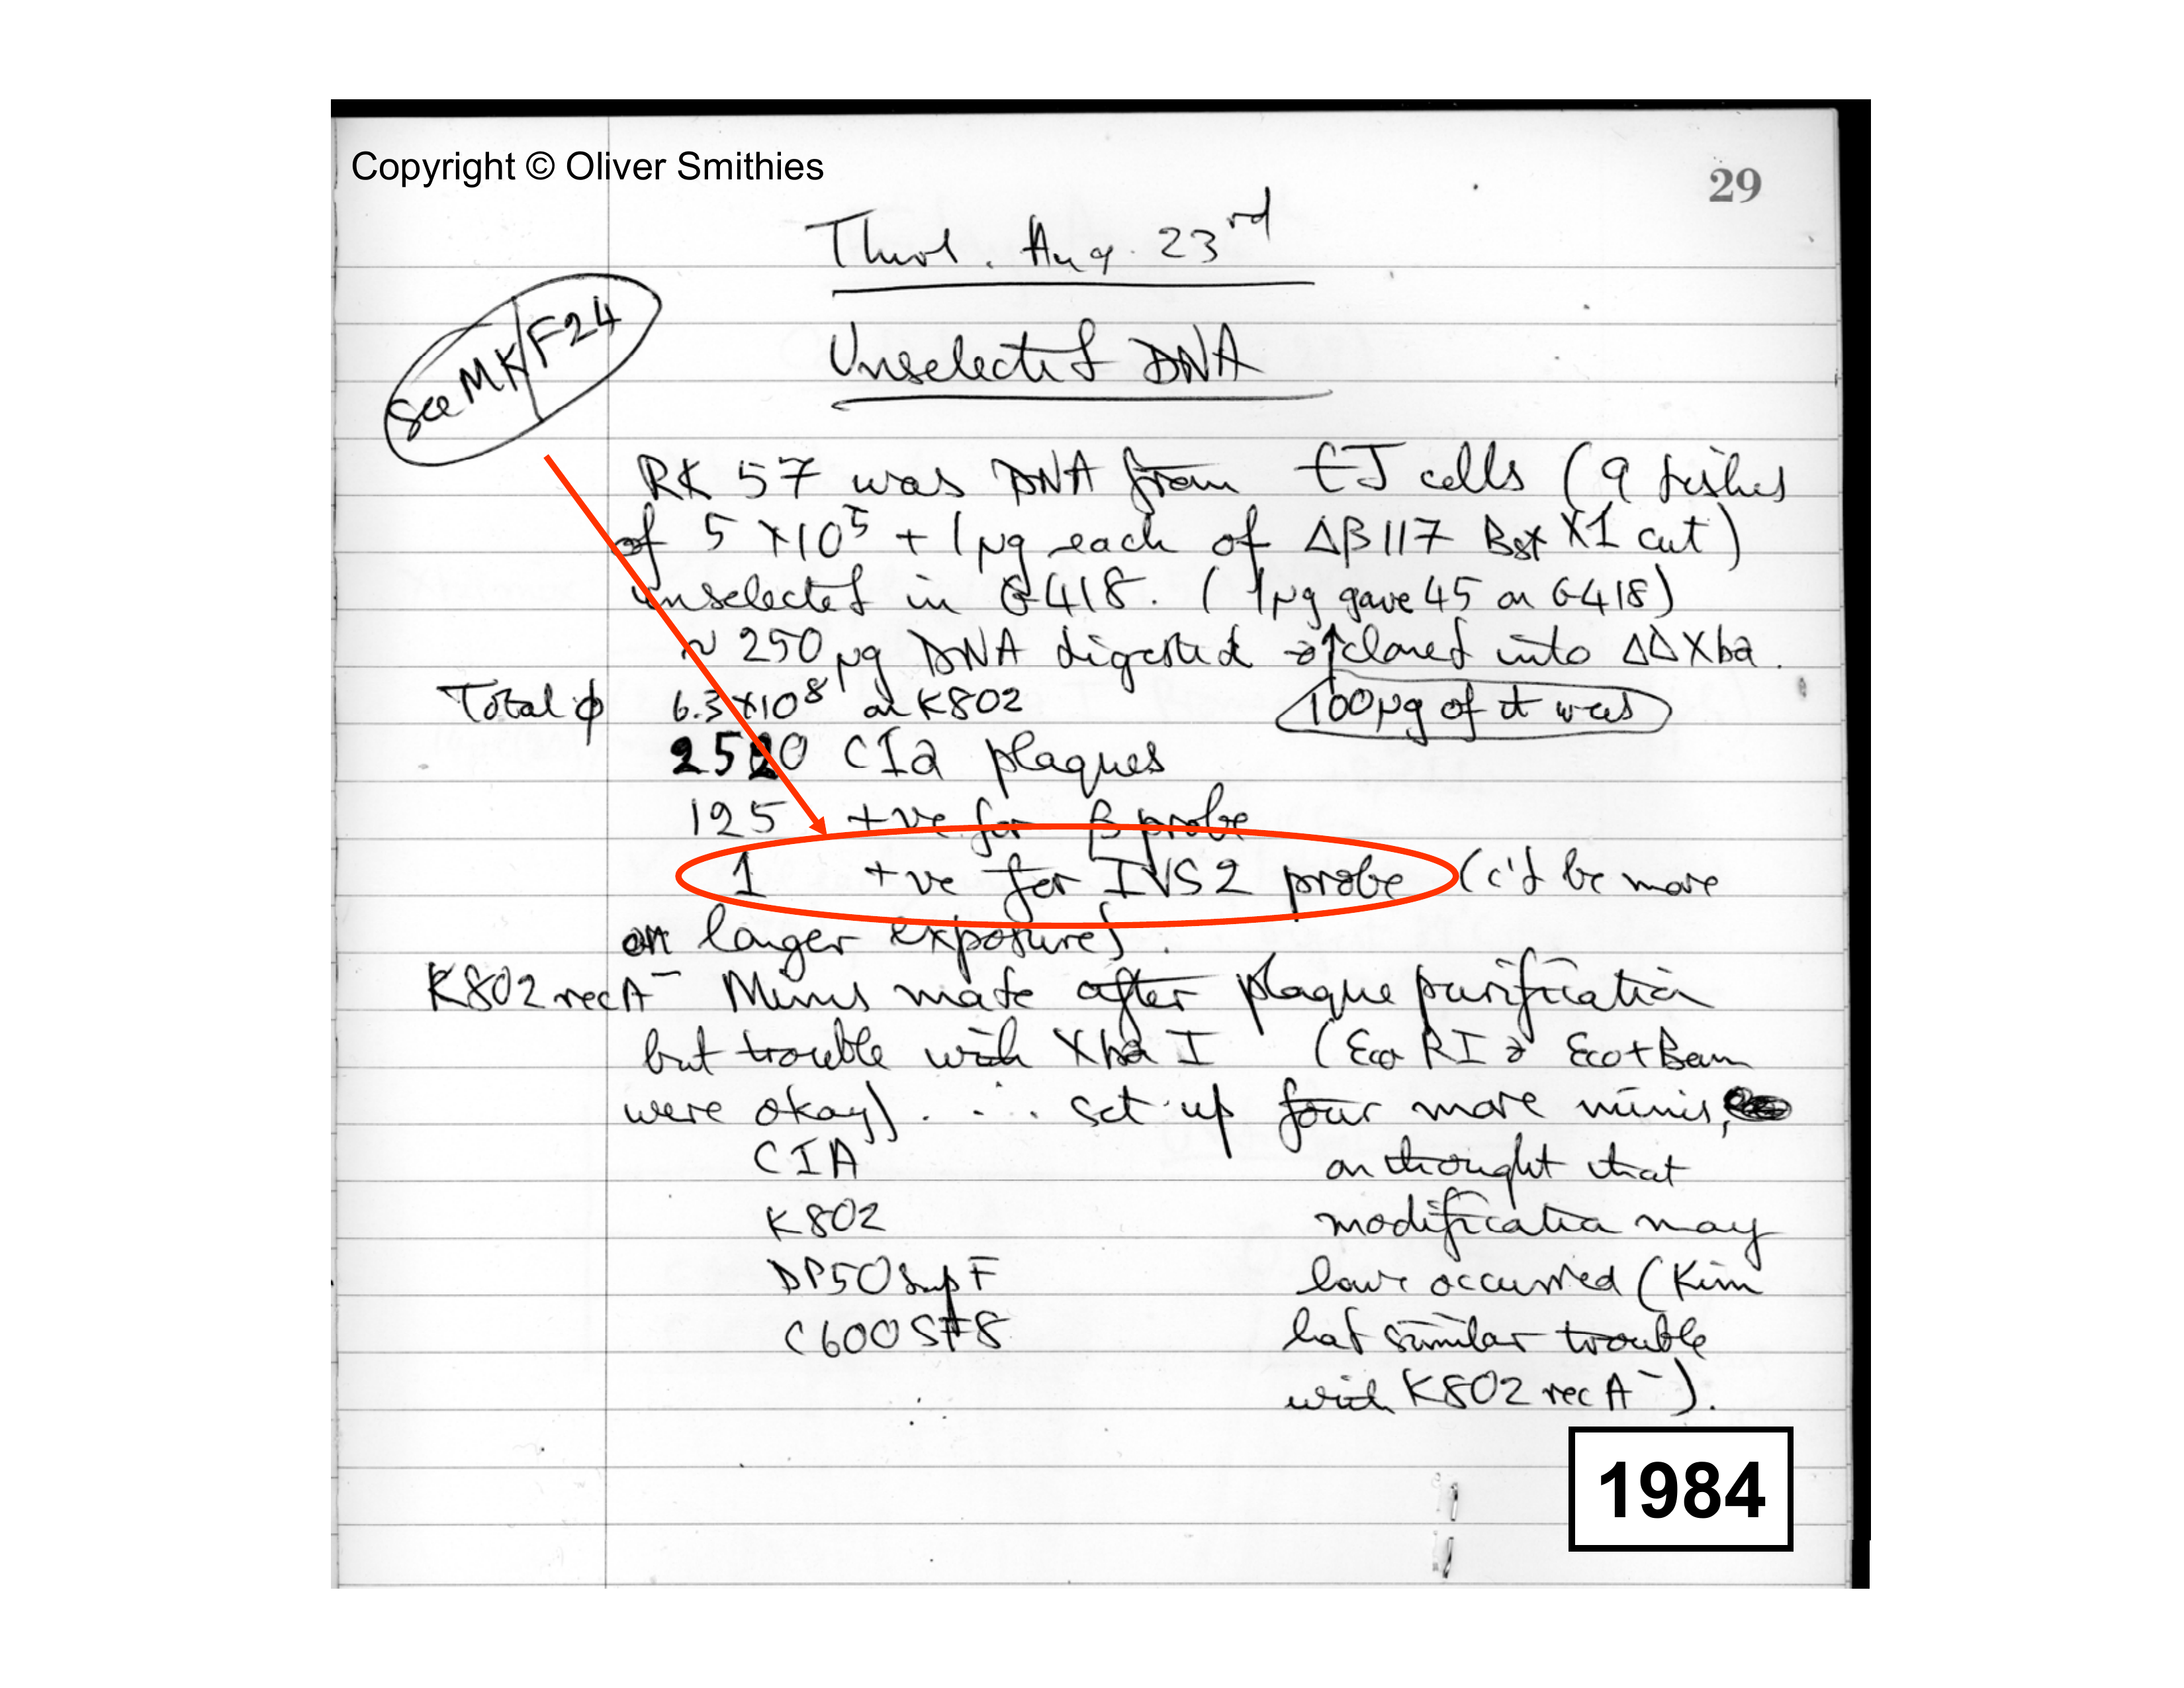 Copyright © Oliver Smithies
29
Thurs. Aug. 23rd
see MK/F24
Unselected DNA
RK 57 was DNA from EJ cells (9 dishes
of 5 x 10^5 + 1 µg each of Δβ117 BstX1 cut)
unselected in G418. (1 µg gave 45 on G418)
~ 250 µg DNA digested → cloned into ΔΔXba.
100 µg of it was
Total φ 6.3 x 10^8 on K802
2520 CIa plaques
125 +ve for β probe
1 +ve for IVS2 probe (c'd be more
on longer exposure).
K802 recA⁻ Minis made after plaque purification
but trouble with Xba I (Eco RI & Eco + Bam
were okay). ∴ set up four more minis,
CIA on thought that
K802 modification may
DP50 supF have occurred (Kim
C600 SF8 had similar trouble
with K802 recA⁻).
1984